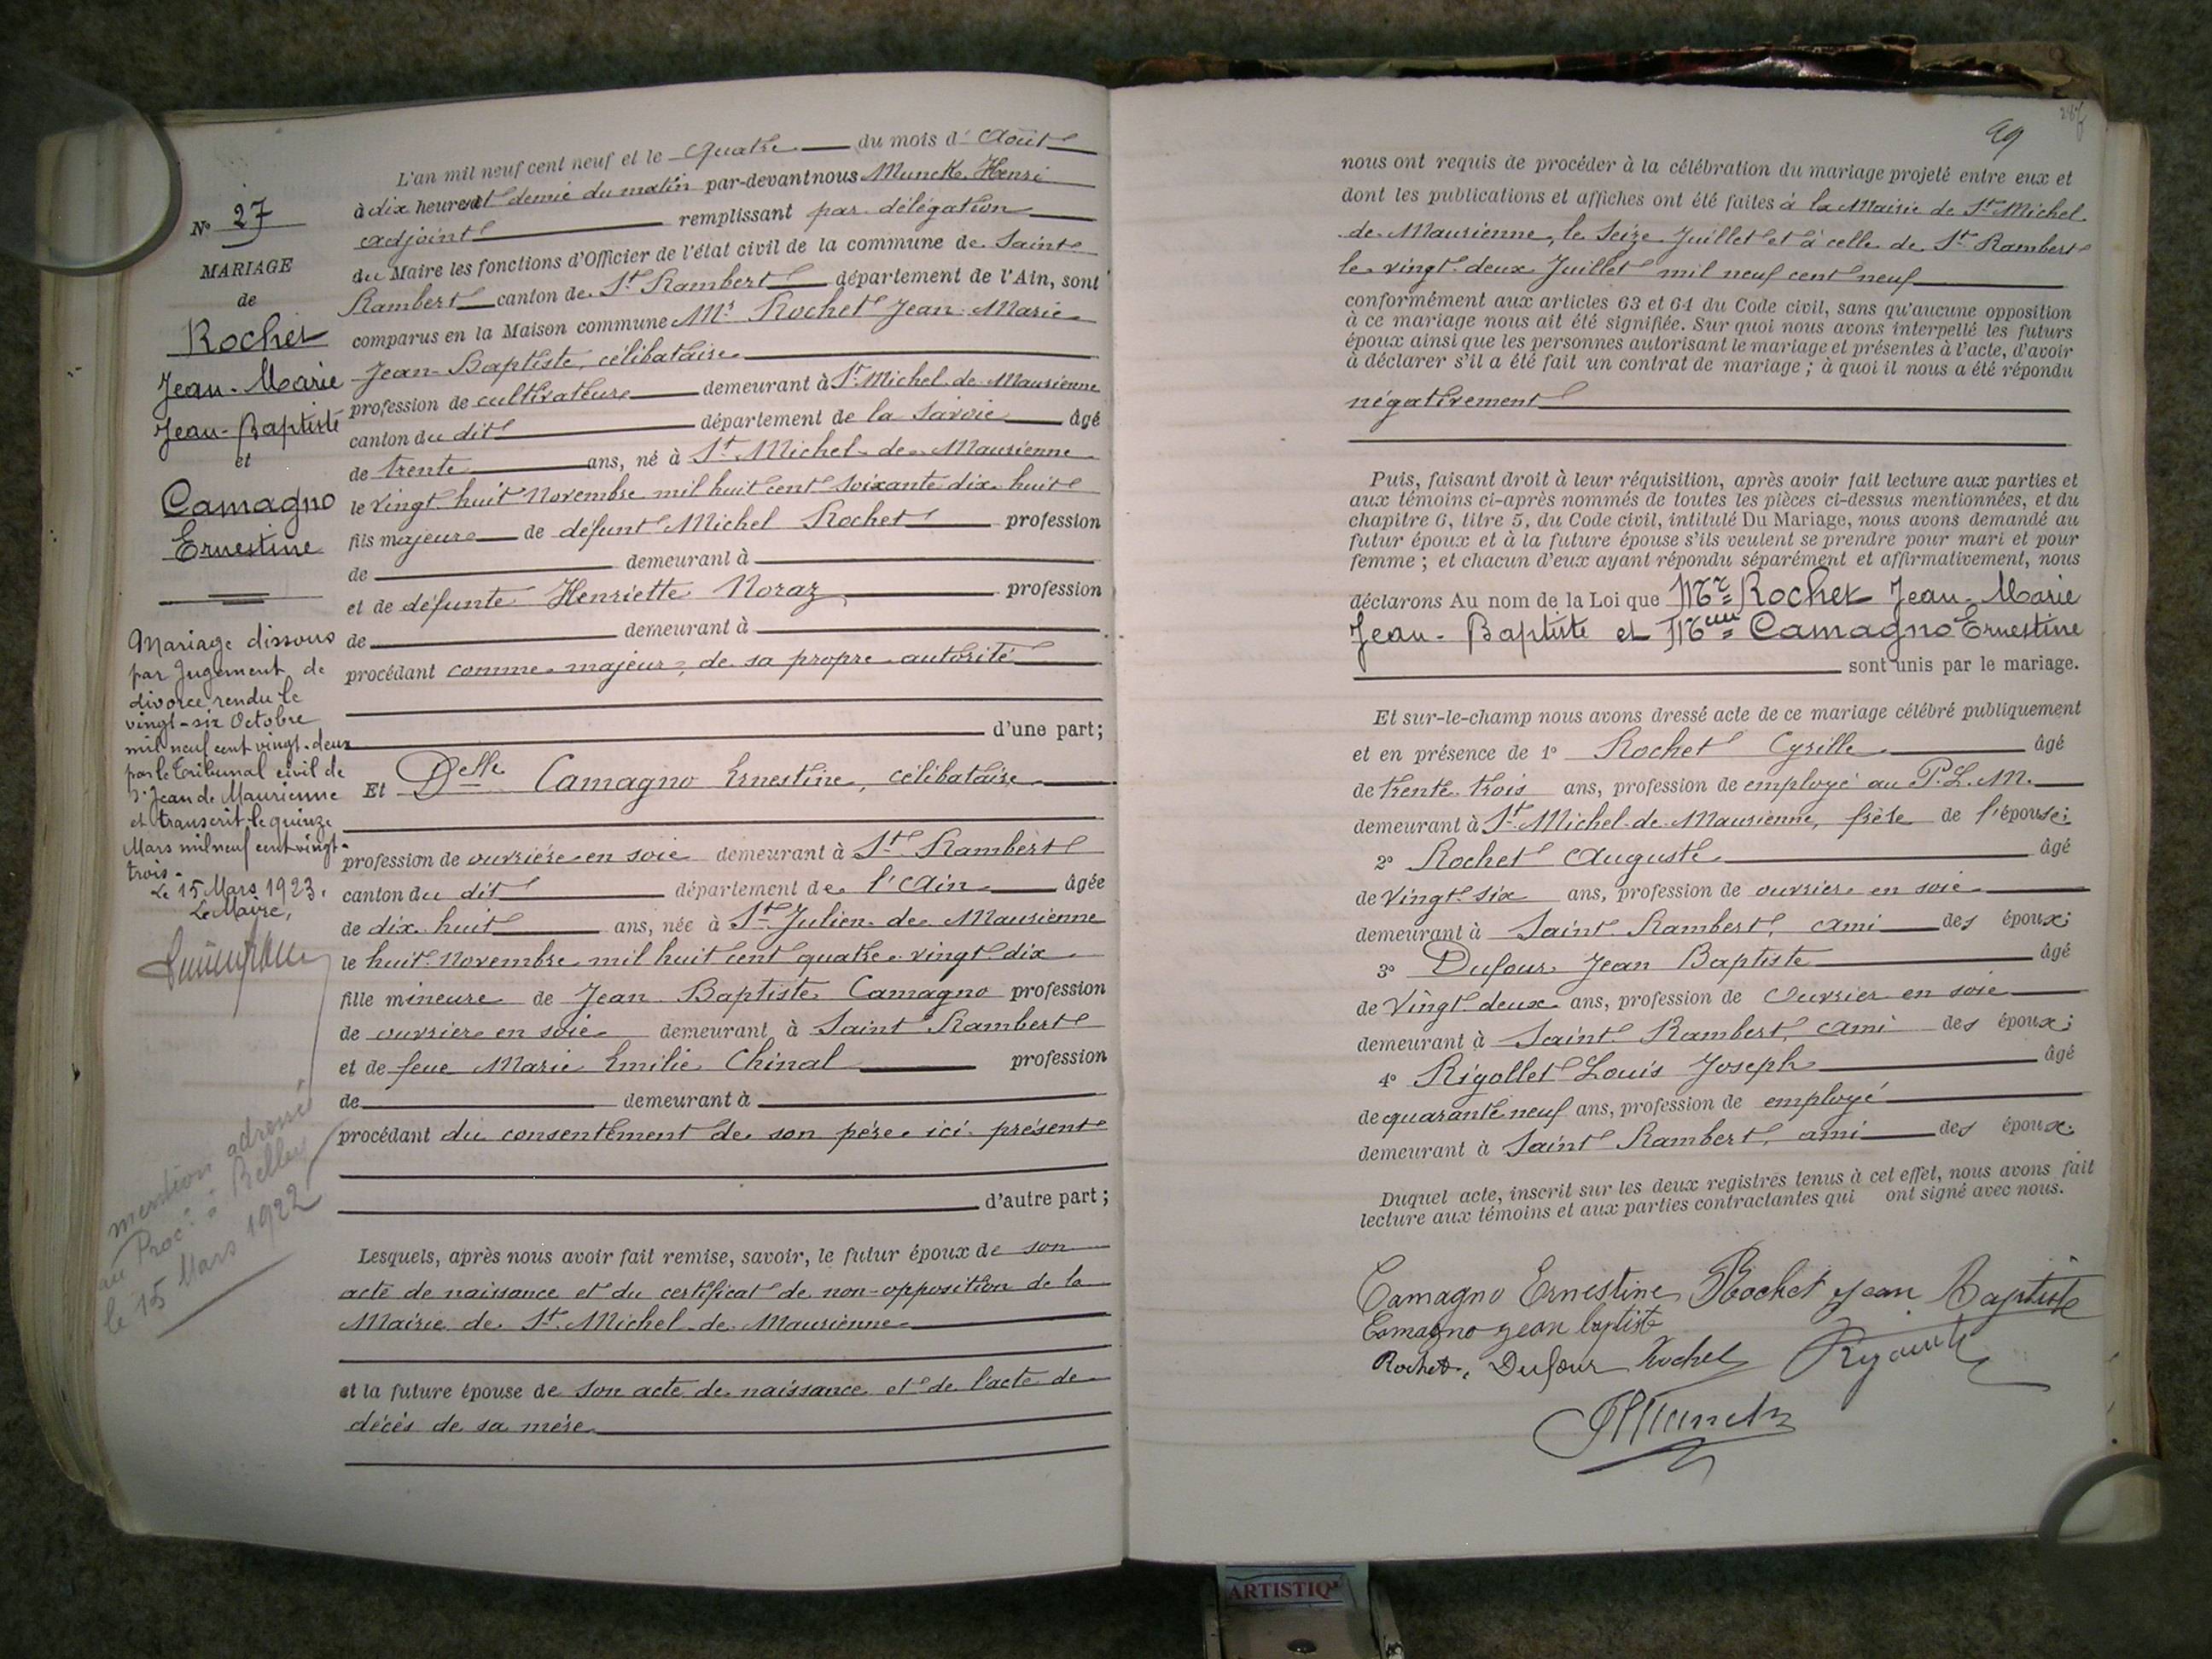 N° 27
MARIAGE
de
Rochet
Jean-Marie
Jean-Baptiste
et
Camagno
Ernestine
Mariage dissous
par Jugement de
divorce rendu le
vingt-six Octobre
mil neuf cent vingt-deux
par le Tribunal civil de
St Jean de Maurienne
et transcrit le quinze
Mars mil neuf cent vingt-
trois.
Le 15 Mars 1923.
Le Maire,
mention adressée
au Proc. à Belley
le 15 Mars 1922
L'an mil neuf cent neuf et le quatre du mois d'Août
à dix heures et demie du matin par-devant nous Munck Henri
adjoint remplissant par délégation
du Maire les fonctions d'Officier de l'état civil de la commune de Saint
Rambert canton de St Rambert département de l'Ain, sont
comparus en la Maison commune Mr Rochet Jean-Marie
Jean-Baptiste, célibataire
profession de cultivateur demeurant à St Michel-de-Maurienne
canton du dit département de la Savoie âgé
de trente ans, né à St Michel-de-Maurienne
le vingt huit Novembre mil huit cent soixante dix huit
fils majeur de défunt Michel Rochet profession
de demeurant à
et de défunte Henriette Noraz profession
de demeurant à
procédant comme majeur, de sa propre autorité
d'une part;
Et Delle Camagno Ernestine, célibataire
profession de ouvrière en soie demeurant à St Rambert
canton du dit département de l'Ain âgée
de dix huit ans, née à St Julien-de-Maurienne
le huit Novembre mil huit cent quatre-vingt dix
fille mineure de Jean Baptiste Camagno profession
de ouvrier en soie demeurant à Saint Rambert
et de feue Marie Emilie Chinal profession
de demeurant à
procédant du consentement de son père ici présent
d'autre part;
Lesquels, après nous avoir fait remise, savoir, le futur époux de son
acte de naissance et du certificat de non-opposition de la
Mairie de St Michel-de-Maurienne
et la future épouse de son acte de naissance et de l'acte de
décès de sa mère
287
99
nous ont requis de procéder à la célébration du mariage projeté entre eux et
dont les publications et affiches ont été faites à la Mairie de St Michel
de-Maurienne, le Seize Juillet et à celle de St Rambert
le vingt-deux Juillet mil neuf cent neuf
conformément aux articles 63 et 64 du Code civil, sans qu'aucune opposition
à ce mariage nous ait été signifiée. Sur quoi nous avons interpellé les futurs
époux ainsi que les personnes autorisant le mariage et présentes à l'acte, d'avoir
à déclarer s'il a été fait un contrat de mariage; à quoi il nous a été répondu
négativement
Puis, faisant droit à leur réquisition, après avoir fait lecture aux parties et
aux témoins ci-après nommés de toutes les pièces ci-dessus mentionnées, et du
chapitre 6, titre 5, du Code civil, intitulé Du Mariage, nous avons demandé au
futur époux et à la future épouse s'ils veulent se prendre pour mari et pour
femme; et chacun d'eux ayant répondu séparément et affirmativement, nous
déclarons Au nom de la Loi que Mr Rochet Jean-Marie
Jean-Baptiste et Melle Camagno Ernestine
sont unis par le mariage.
Et sur-le-champ nous avons dressé acte de ce mariage célébré publiquement
et en présence de 1° Rochet Cyrille âgé
de trente-trois ans, profession de employé au P.L.M.
demeurant à St Michel-de-Maurienne, frère de l'épouse;
2° Rochet Auguste âgé
de Vingt-six ans, profession de ouvrier en soie
demeurant à Saint-Rambert, ami des époux;
3° Dufour Jean Baptiste âgé
de Vingt-deux ans, profession de Ouvrier en soie
demeurant à Saint-Rambert, ami des époux;
4° Rigollet Louis Joseph âgé
de quarante neuf ans, profession de employé
demeurant à Saint Rambert, ami des époux.
Duquel acte, inscrit sur les deux registres tenus à cet effet, nous avons fait
lecture aux témoins et aux parties contractantes qui ont signé avec nous.
Camagno Ernestine Rochet Jean Baptiste
Camagno jean baptiste
Rochet, Dufour Rochet
HMunck
ARTISTIQ